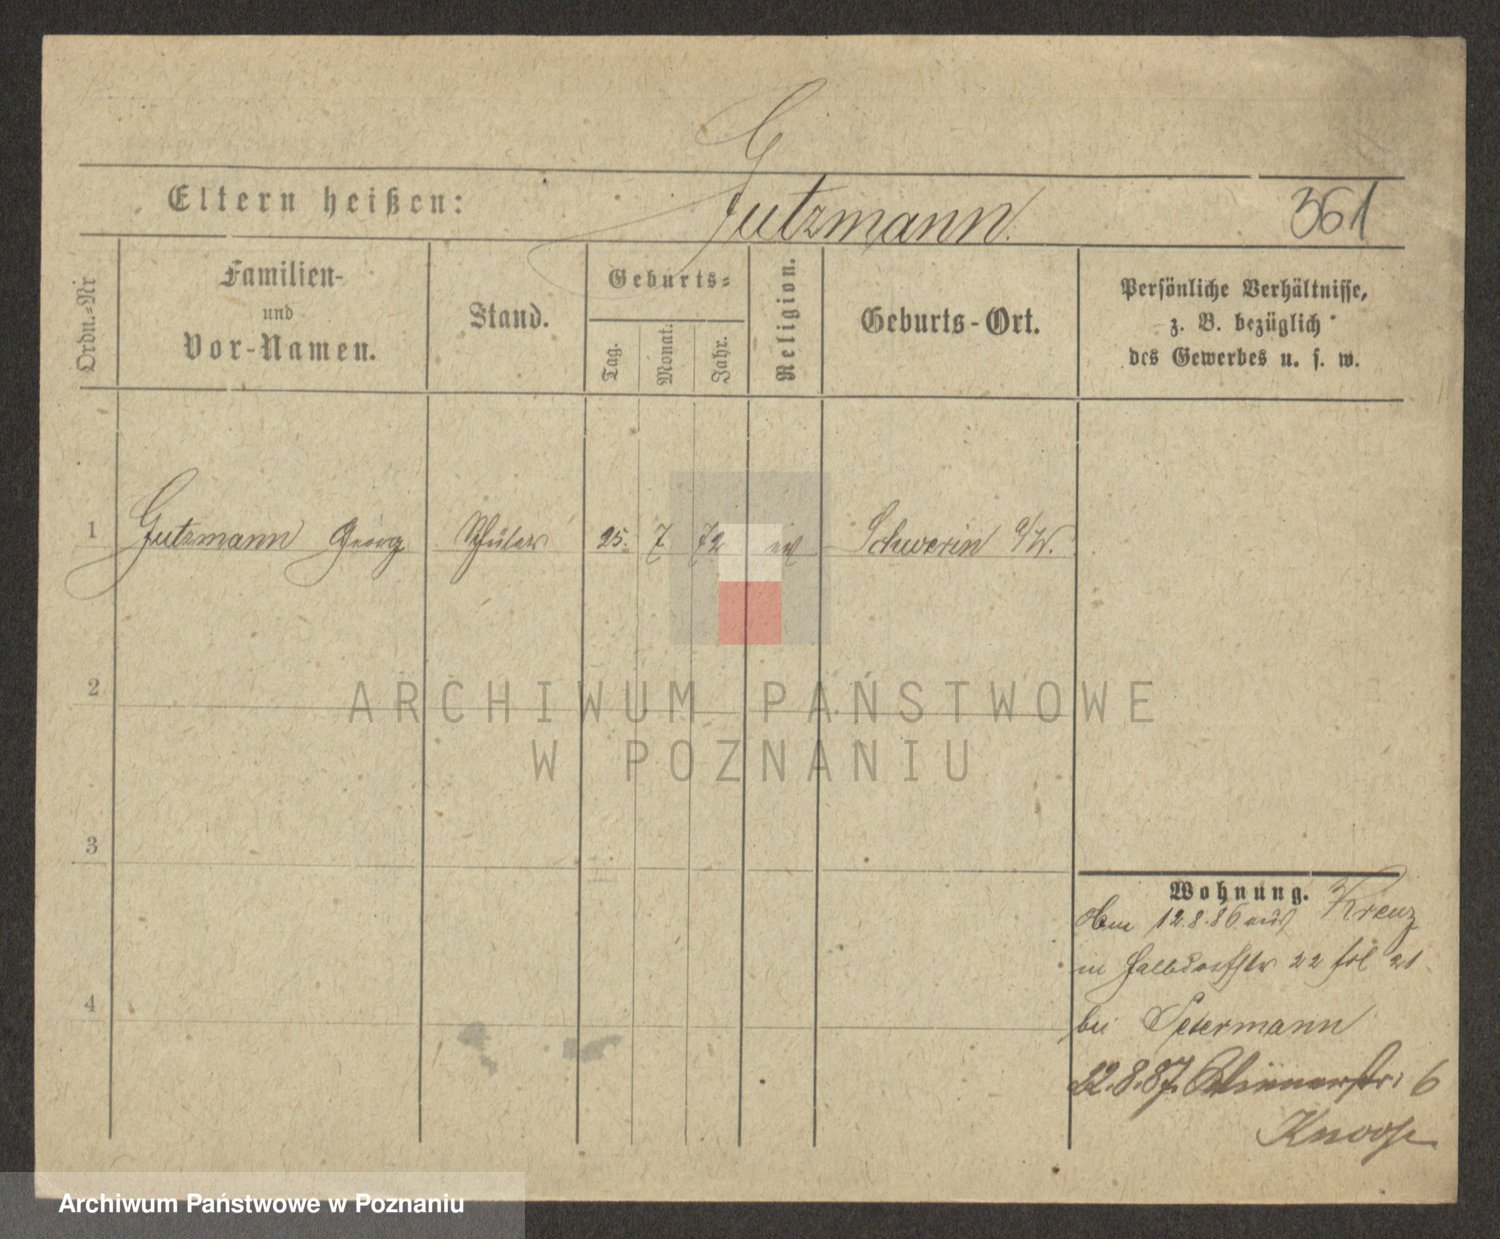 Eltern heißen: Gutzmann. 361
Ordn.-Nr
Familien-
und
Vor-Namen.
Stand.
Geburts-
Tag.
Monat.
Jahr.
Religion.
Geburts-Ort.
Persönliche Verhältnisse,
z. B. bezüglich
des Gewerbes u. s. w.
1 Gutzmann Georg Schüler 25. 7 72 ev Schwerin a/W.
2
ARCHIWUM PAŃSTWOWE
W POZNANIU
3
Wohnung.
12.8.86 aus Kreuz
in Halbdorfstr 22 fol 21
4
bei Petermann
22.8.87. Wienerstr. 6
Archiwum Państwowe w Poznaniu